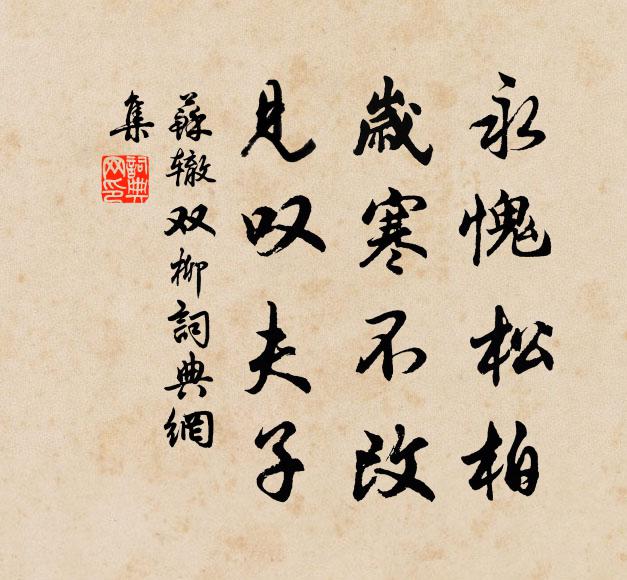 永愧松柏
歲寒不改
見叹夫子
蘇辙双柳詞典網
集
詞典网印